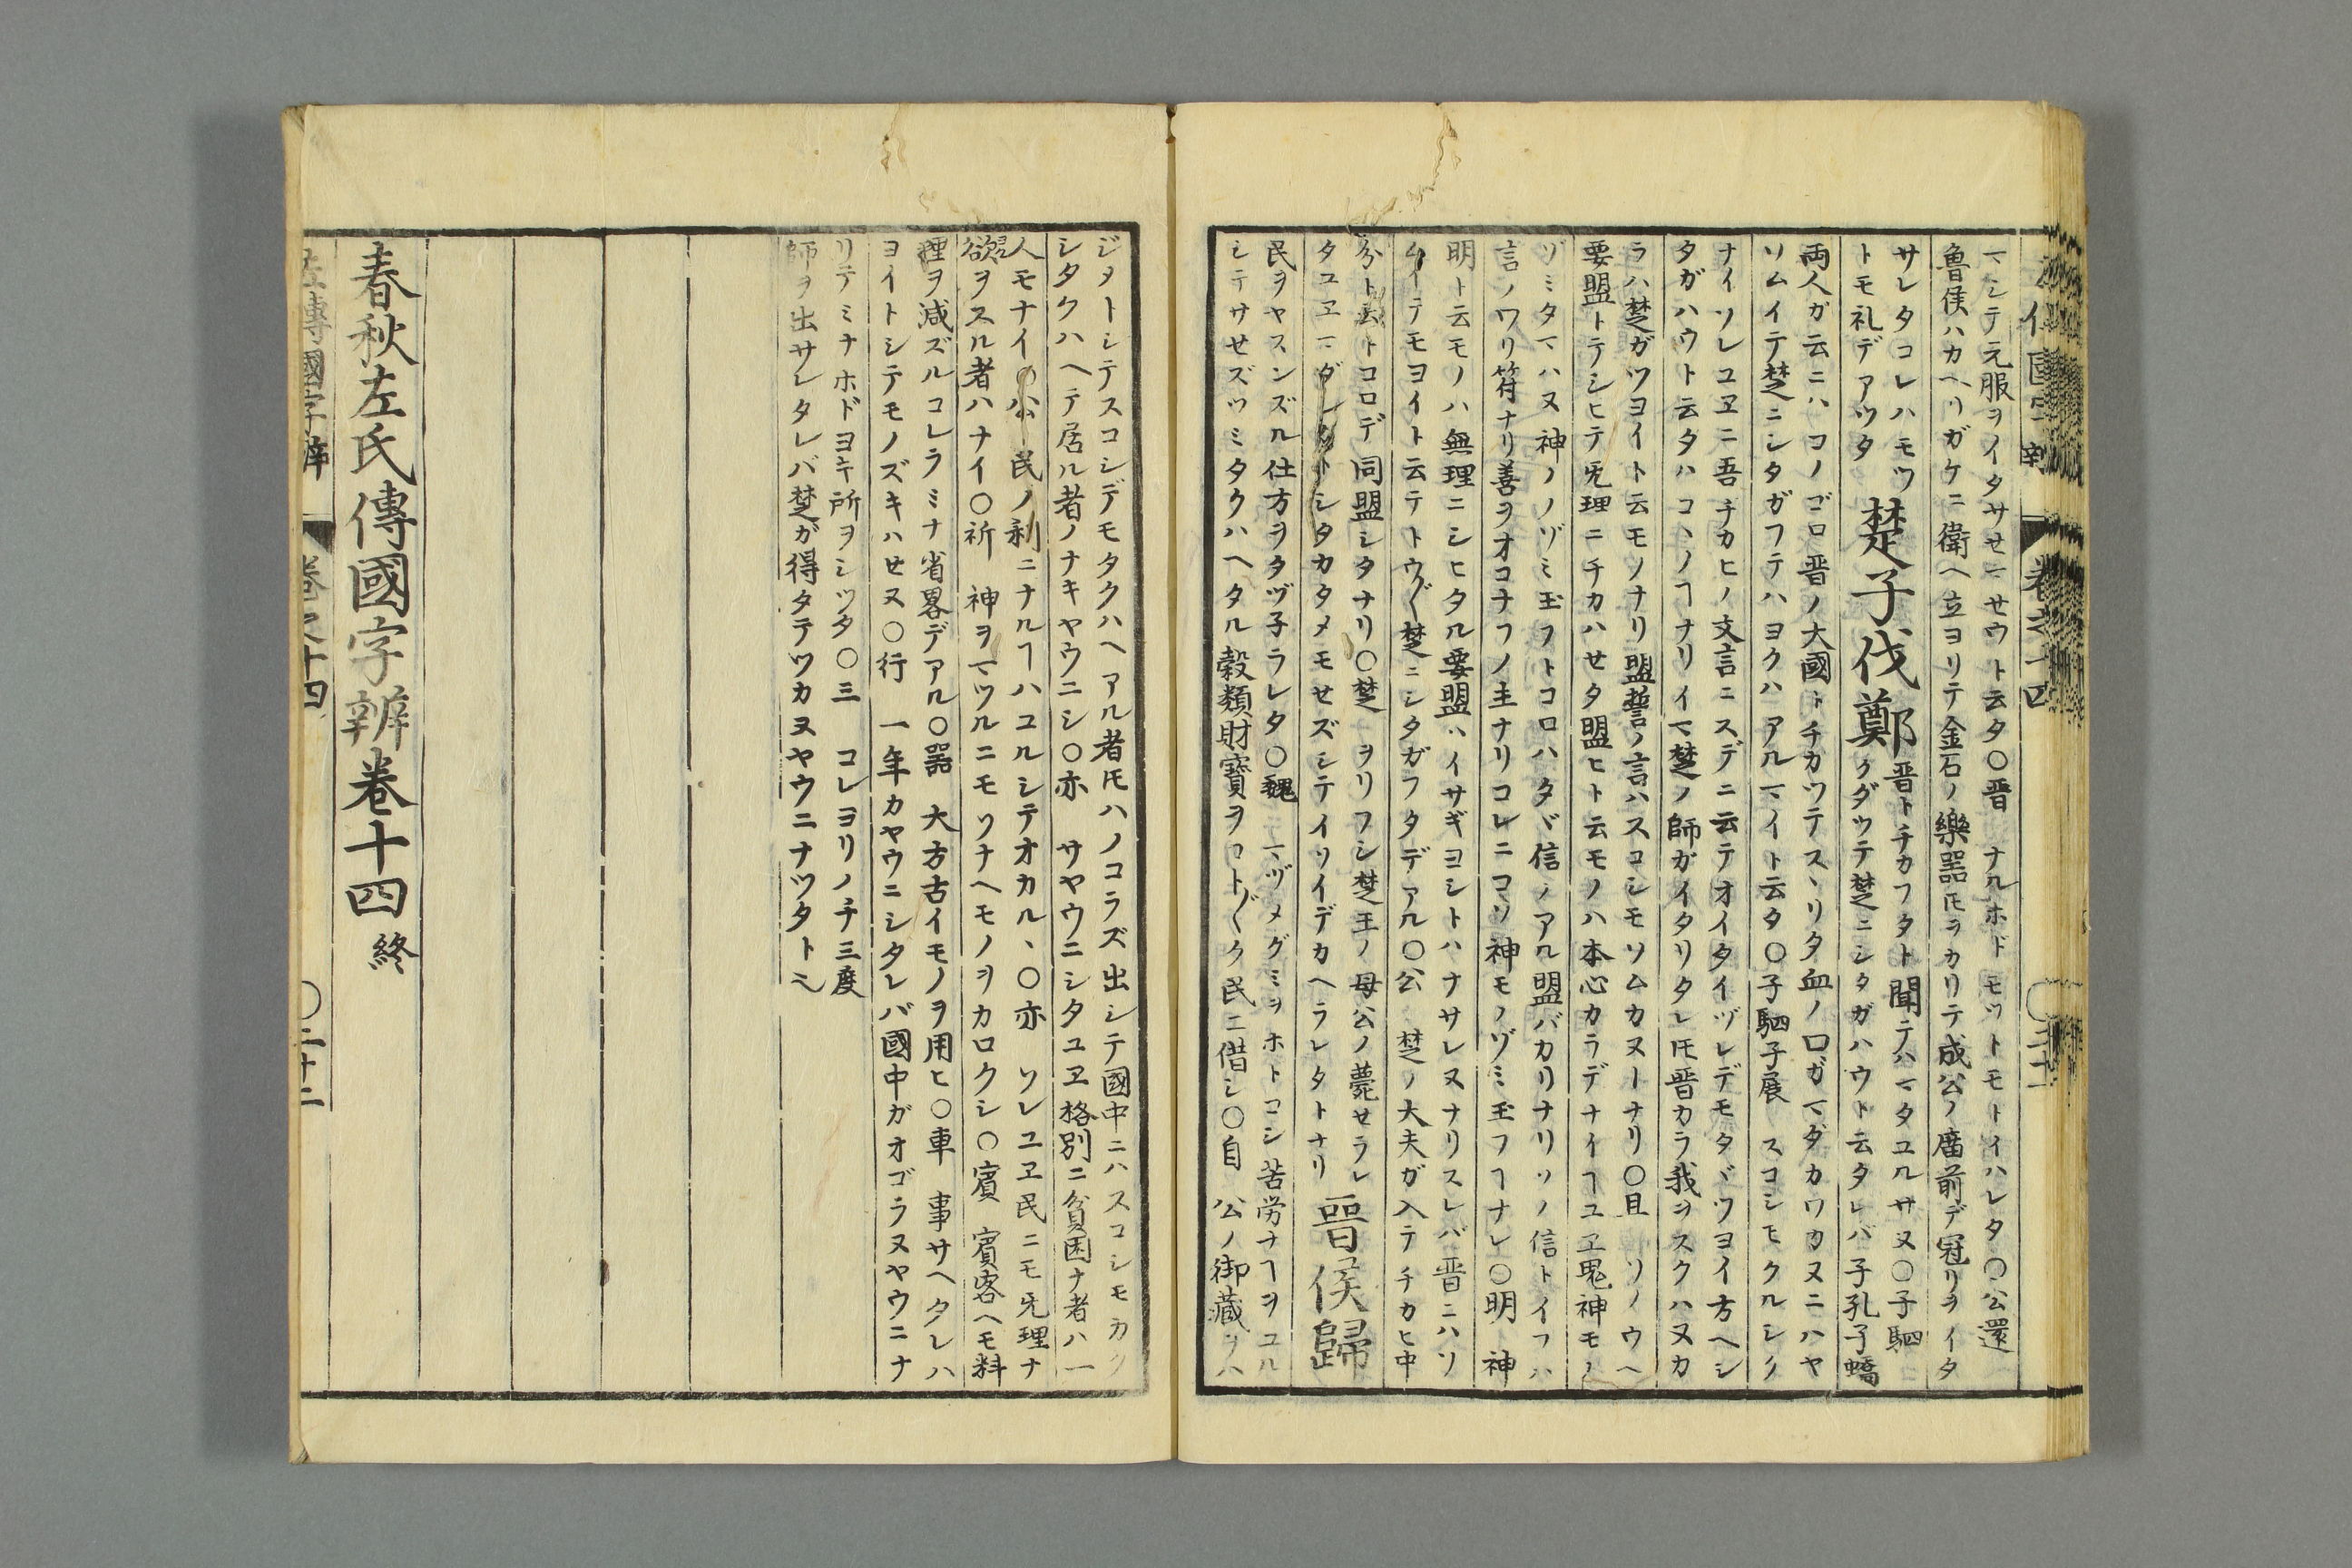 マシテ元服ヲイタサセマセウト云タ〇晋 ナルホドモツトモトイハレタ〇公還
魯侯ハカヘリガケニ衛ヘ立ヨリテ金石ノ樂器𪜈ヲカリテ成公ノ廟前デ冠リヲイタ
サレタコレハモツ
トモ礼デアツタ
楚子伐鄭
晋トチカフタト聞テハマタユルサヌ〇子駟
クダツテ楚ニシタガハウト云タレバ子孔子蟜
両人ガ云ニハコノゴロ晋ノ大國トチカツテスヽリタ血ノ口ガマダカワカヌニハヤ
ソムイテ楚ニシタガフテハヨクハアルマイト云タ〇子駟子展 スコシモクルシク
ナイソレユヱニ吾チカヒノ文言ニスデニ云テオイタイヅレデモタヾツヨイ方ヘシ
タガハウト云タハコヽノヿナリイマ楚ノ師ガイタリタレ𪜈晋カラ我ヲスクハヌカ
ラハ楚ガツヨイト云モノナリ盟誓ノ言ハスコシモソムカヌナリ〇且 ソノウヘ
要盟トテシヒテ无理ニチカハセタ盟ヒト云モノハ本心カラデナイヿユヱ鬼神モノ
ゾミタマハヌ神ノノゾミ玉フトコロハタヾ信ノアル盟バカリナリソノ信トイフハ
言ノワリ符ナリ善ヲオコナフノ主ナリコレニコソ神モノゾミ玉フヿナレ〇明 神
明ト云モノハ無理ニシヒタル要盟ハイサギヨシトハナサレヌナリスレバ晋ニハソ
ムイテモヨイト云テトウ〴〵楚ニシタガフタデアル〇公 楚ノ大夫ガ入テチカヒ中
分ト云トコロデ同盟シタナリ〇楚 ヲリフシ楚王ノ母公ノ薨セラレ
タユヱマダシカトシタカタメモセズシテイソイデカヘラレタトナリ
晋侯歸
民ヲヤスンズル仕方ヲタヅ子ラレタ〇魏 マヅメグミヲホトコシ苦労ナヿヲユル
シテサセズツミタクハヘタル穀類財寶ヲコト〴〵ク民ニ借シ〇自 公ノ御藏ヲハ
ジヲトシテスコシデモタクハヘアル者𪜈ハノコラズ出シテ國中ニハスコシモカク
シタクハヘテ居ル者ノナキヤウニシ〇亦 サヤウニシタユヱ格別ニ貧困ナ者ハ一
人モナイ〇公 民ノ利ニナルヿハユルシテオカルヽ〇亦 ソレユヱ民ニモ无理ナ
欲ヲスル者ハナイ〇祈 神ヲマツルニモソナヘモノヲカロクシ〇賓 賓客ヘモ料
理ヲ減ズルコレラミナ省畧デアル〇器 大方古イモノヲ用ヒ〇車 事サヘタレハ
ヨイトシテモノズキハセヌ〇行 一年カヤウニシタレバ國中ガオゴラヌヤウニナ
リテミナホドヨキ所ヲシツタ〇三 コレヨリノチ三度
師ヲ出サレタレバ楚ガ得タテツカヌヤウニナツタト也
春秋左氏傳國字辨卷十四 終
左傳國字辨 卷之十四 〇二十二